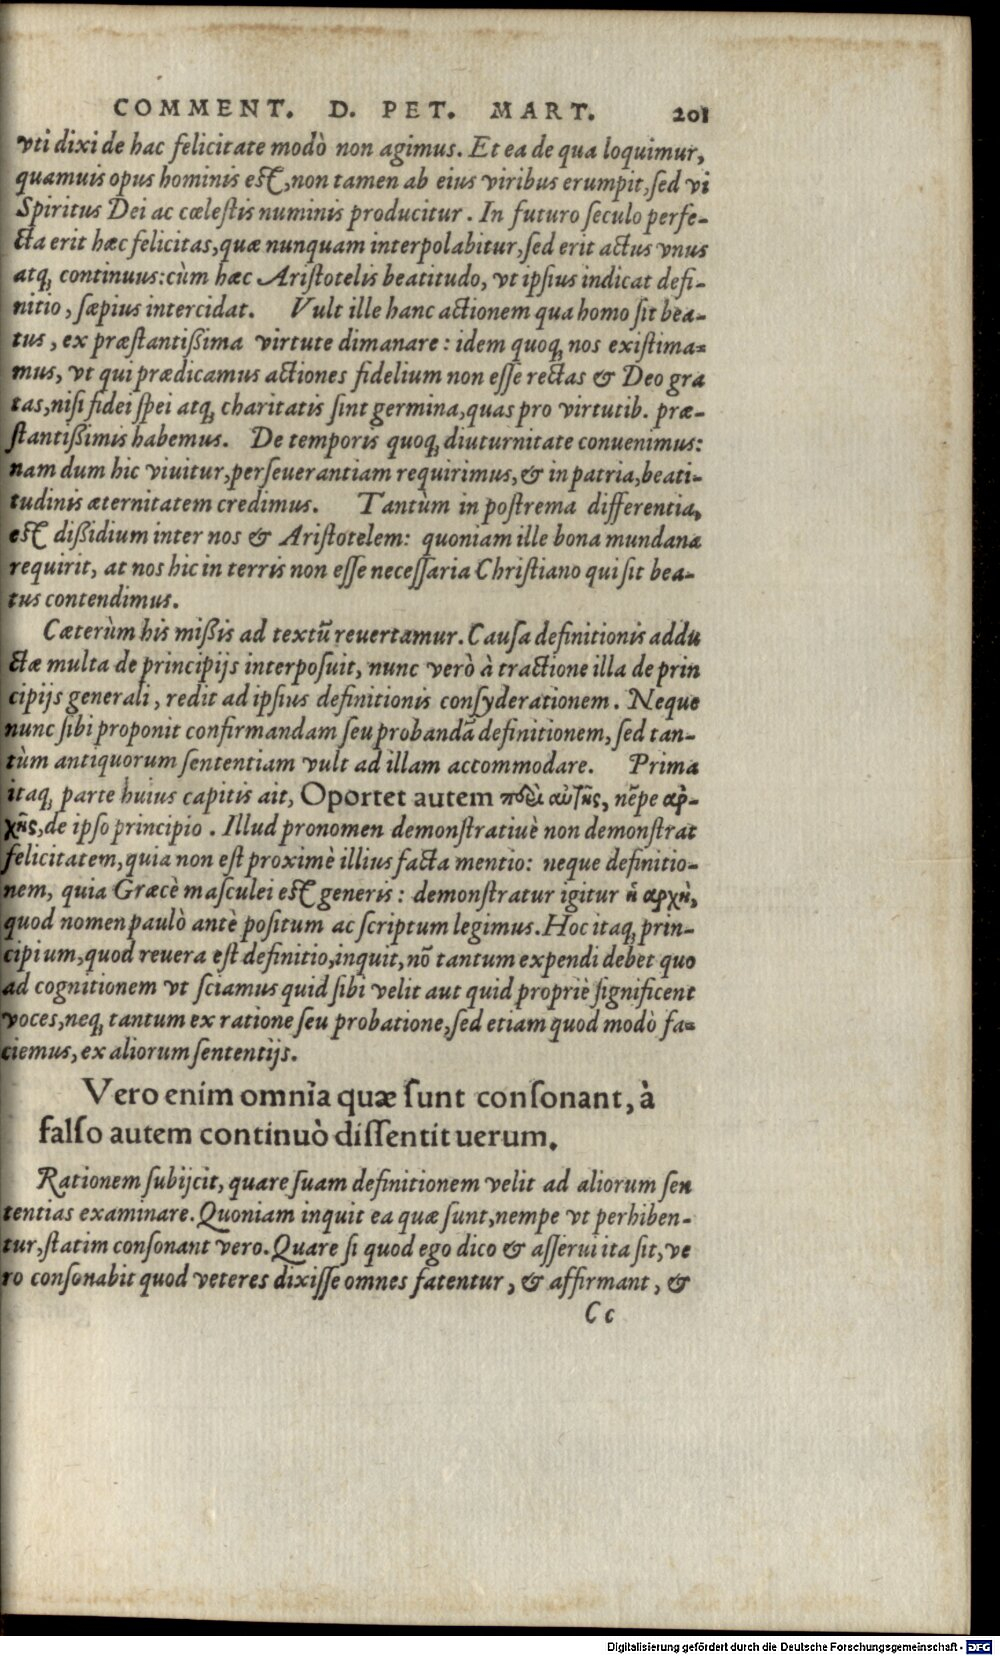 COMMENT. D. PET. MART. 201
vti dixi de hac felicitate modò non agimus. Et ea de qua loquimur,
quamuis opus hominis est, non tamen ab eius viribus erumpit, sed vi
Spiritus Dei ac cœlestis numinis producitur. In futuro seculo perfe-
cta erit hæc felicitas, quæ nunquam interpolabitur, sed erit actus vnus
atq; continuus: cùm hæc Aristotelis beatitudo, vt ipsius indicat defi-
nitio, sæpius intercidat. Vult ille hanc actionem qua homo sit bea-
tus, ex præstantißima virtute dimanare: idem quoq; nos existima-
mus, vt qui prædicamus actiones fidelium non esse rectas & Deo gra
tas, nisi fidei spei atq; charitatis sint germina, quas pro virtutib. præ-
stantißimis habemus. De temporis quoq; diuturnitate conuenimus:
nam dum hic viuitur, perseuerantiam requirimus, & in patria, beati-
tudinis æternitatem credimus. Tantùm in postrema differentia,
est dißidium inter nos & Aristotelem: quoniam ille bona mundana
requirit, at nos hic in terris non esse necessaria Christiano qui sit bea-
tus contendimus.
Cæterùm his mißis ad textũ reuertamur. Causa definitionis addu
ctæ multa de principijs interposuit, nunc verò à tractione illa de prin
cipijs generali, redit ad ipsius definitionis consyderationem. Neque
nunc sibi proponit confirmandam seu probandã definitionem, sed tan-
tùm antiquorum sententiam vult ad illam accommodare. Prima
itaq; parte huius capitis ait, Oportet autem περὶ αὐτῆς, nẽpe ἀρ-
χῆς, de ipso principio. Illud pronomen demonstratiuè non demonstrat
felicitatem, quia non est proximè illius facta mentio: neque definitio-
nem, quia Græcè masculei est generis: demonstratur igitur ἡ ἀρχὴ,
quod nomen paulò antè positum ac scriptum legimus. Hoc itaq; prin-
cipium, quod reuera est definitio, inquit, nõ tantum expendi debet quo
ad cognitionem vt sciamus quid sibi velit aut quid propriè significent
voces, neq; tantum ex ratione seu probatione, sed etiam quod modò fa-
ciemus, ex aliorum sententijs.
Vero enim omnia quæ sunt consonant, à
falso autem continuò dissentit uerum.
Rationem subijcit, quare suam definitionem velit ad aliorum sen
tentias examinare. Quoniam inquit ea quæ sunt, nempe vt perhiben-
tur, statim consonant vero. Quare si quod ego dico & asserui ita sit, ve
ro consonabit quod veteres dixisse omnes fatentur, & affirmant, &
Cc
Digitalisierung gefördert durch die Deutsche Forschungsgemeinschaft - DFG